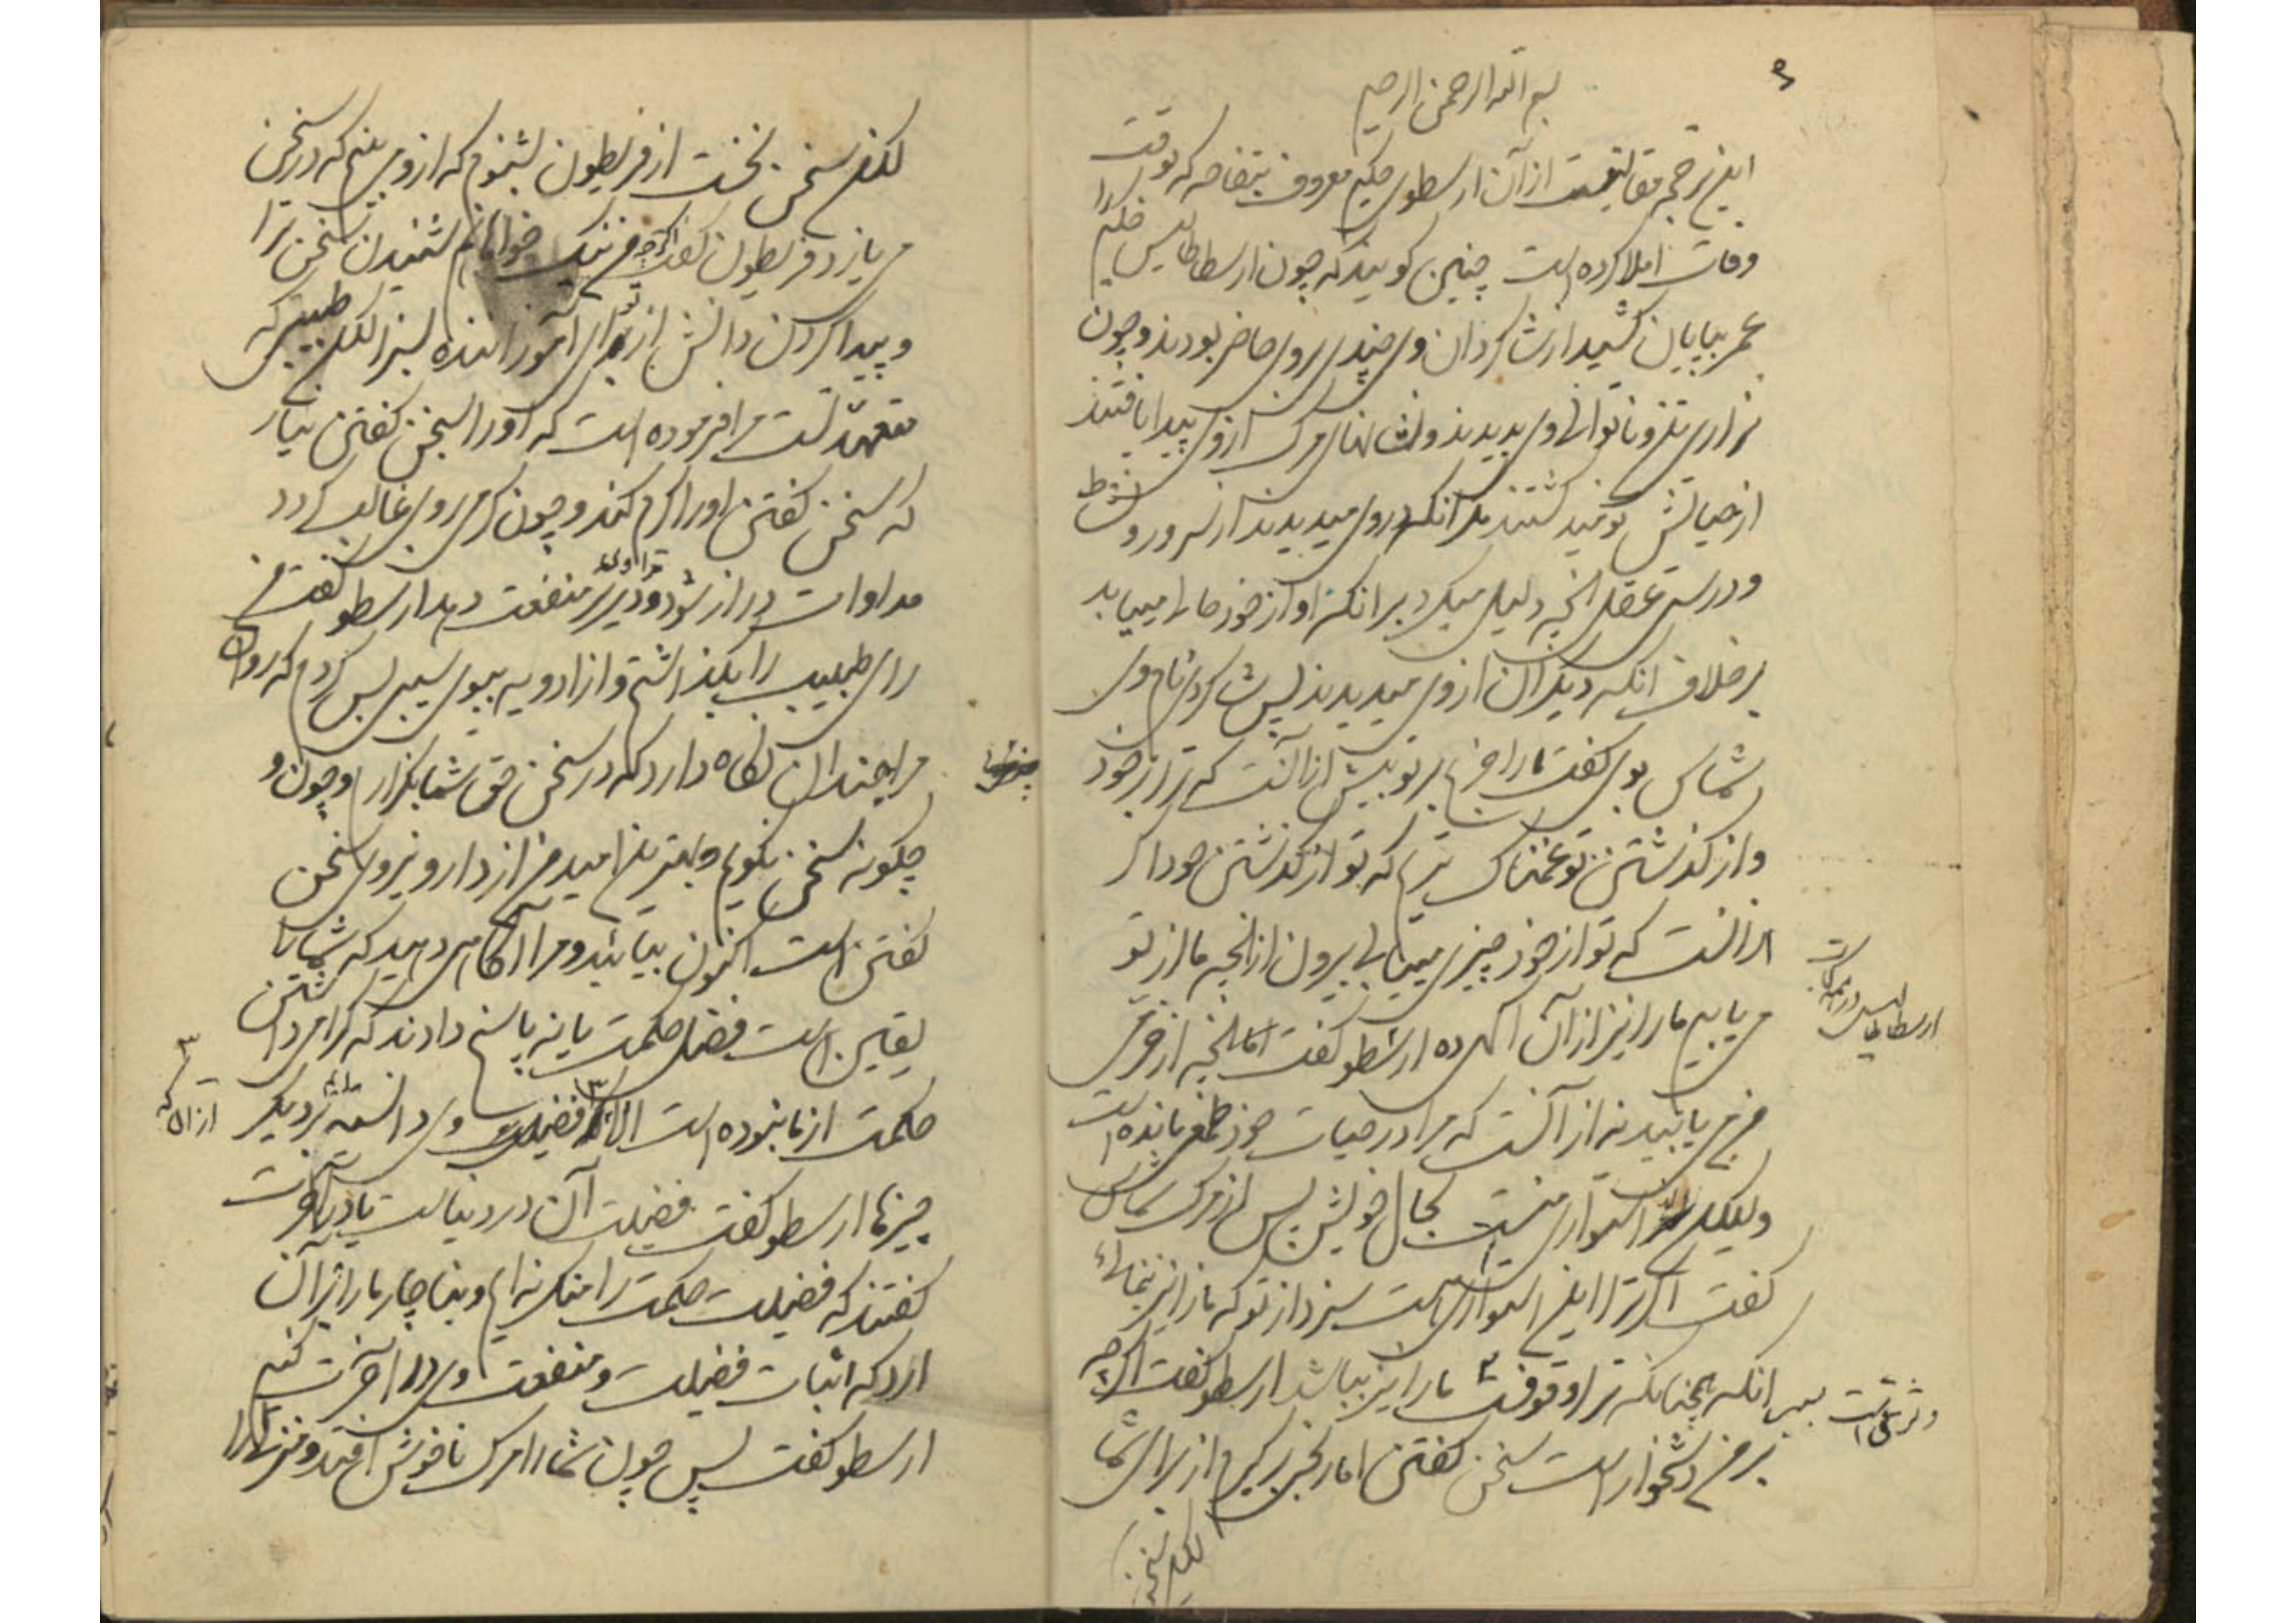 بسم الله الرحمن الرحیم
این ترجمه مقالتیست ازآن ارسطوی حکیم معروف بتفاحه که بوقت
وفات املا کرده است چنین کویند که چون ارسطاطالیس حکیم را
عمر بپایان کشید از شاکردان وی چندی بروی حاضر بودند و چون
نزاری تن و ناتوانی وی بدیدند و نشانهای مرک ازوی پیدا یافتند
از حیاتش نومید کشتند مکر آنکه دروی میدیدند از سرور و نشاط
و درستی عقل آنچه دلیل میکرد بر آنکه او از خود حال را مییابد
بر خلاف آنکه دیکران ازوی میدیدند پس شاکردی نام وی
شماس بوی کفت ما را جزع بر تو بیش از آنست که ترا بر خود
و از کذشتن تو غمناک تریم که تو از کذشتن خود اکر
از آنست که تو از خود چیزی مییابی بیرون از آنچه ما از تو
می یابیم ما را نیز از آن آکهی ده ارسطو کفت اما آنچه از خرمی
من می یابید نه از آنست که مرا در حیات خود طمعی مانده است
ولیکن استواری منست بحال خویش پس از مرک شماس
کفت اکر ترا این استواری است سزد از تو که ما را نیز بنمائی
سبب آنکه همچنانکه ترا وقوفست ما را نیز باشد ارسطو کفت اکرچه
بر من دشخوار است سخن کفتن اما رنجی برکیرم از برای شما
لیکن سخن
ارسطاطالیس
لکن سخن نخست از قریطون بشنوم که ازوی می بینم که در سخن
می یازد قریطون کفت اکرچه من نیک خواهانم شنیدن سخن ترا
و پیدا کردن دانش از تو ای آموزاننده لکن طبیبی که
متعهد تست مرا فرموده است که او را بسخن کفتن میار
که سخن کفتن او را کرم کند و چون کرمی بروی غالب کردد
مداوات دراز شود و دیرتر منفعت دهد ارسطو کفت من
رای طبیب را بکذاشتم و از ادویه ببوی سیبی بس کردم که روان
مرا چندان نکاه دارد که در سخن حق شما بکزارم و چون
چکونه سخن نکویم و بهترین امید من از دارو نیروی سخن
کفتن است اکنون بیایید و مرا آکاهی دهید که شما را
یقین است فضل حکمت یا نه پاسخ دادند که کرامی داشتن
حکمت از ما نبوده است الا از فضیلت وی دانسته بر دیکر
از آن که
چیزها ارسطو کفت فضیلت آن در دنیاست یا در آخرت
کفتند که فضیلت حکمت را منکر نه ایم و بناچار ما را بر آن
آرد که اثبات فضیلت و منفعت وی در آخرت کنیم
ارسطو کفت پس چون شما را مرک ناخوش افتد